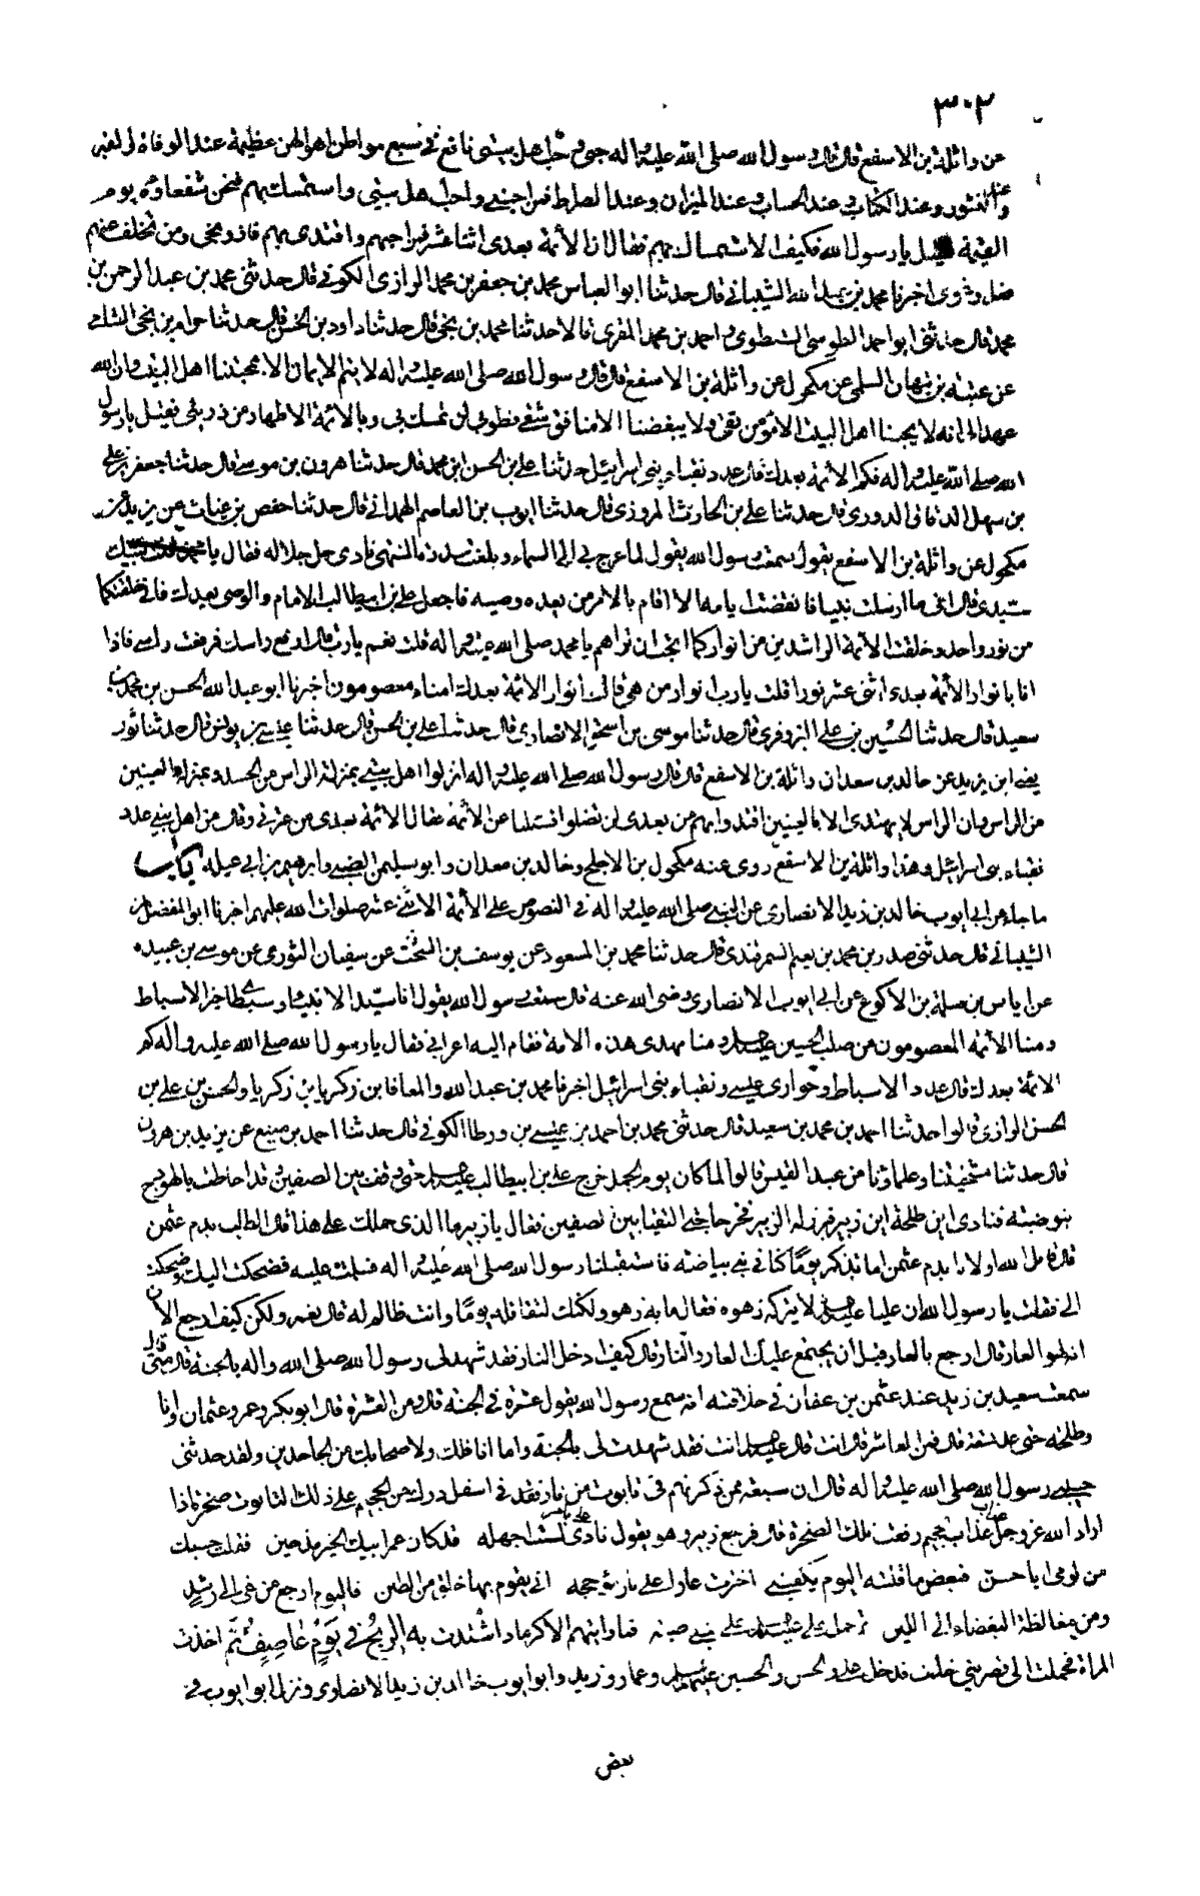 ٣٠٢
عن واثلة بن الاسفع قال قال رسول الله صلى الله عليه واله حبى وحب اهل بيتى نافع فى سبع مواطن اهوالهن عظيمة عند الوفاة والقبر
وعند النشور وعند الكتاب وعند الحساب وعند الميزان وعند الصراط فمن احبنى واحب اهل بيتى واستمسك بهم فنحن شفعاؤه يوم
القيمة فقيل يا رسول الله فكيف الاستمساك بهم فقال ان الأئمة بعدى اثنا عشر فمن احبهم واقتدى بهم فاز ونجى ومن تخلف عنهم
ضل وغوى اخبرنا محمد بن عبد الله الشيبانى قال حدثنا ابو العباس محمد بن جعفر بن محمد الرازى الكوفى قال حدثنى محمد بن عبد الرحمن بن
محمد قال حدثنى ابو احمد الطوسى الشطوى واحمد بن محمد المقرى قالا حدثنا محمد بن يحيى قال حدثنا داود بن الحسن قال حدثنا حرام بن يحيى الشامى
عن عتبة بن نبهان السلمى عن مكحول عن واثلة بن الاسفع قال قال رسول الله صلى الله عليه واله لا يتم الايمان الا بمحبتنا اهل البيت وان الله
عهد الى انه لا يحبنا اهل البيت الا مؤمن تقى ولا يبغضنا الا منافق شقى فطوبى لمن تمسك بى وبالائمة الاطهار من ذريتى فقيل يا رسول
الله صلى الله عليه واله فكم الأئمة بعدك قال عدد نقباء بنى اسرائيل حدثنا على بن الحسن ابن محمد قال حدثنا هرون بن موسى قال حدثنا جعفر بن على
بن سهل الدقاق الدورى قال حدثنا على بن الحارث المروزى قال حدثنا ايوب بن العاصم الهمدانى قال حدثنا حفص بن غياث عن يزيد عن
مكحول عن واثلة بن الاسفع يقول سمعت رسول الله يقول لما عرج بى الى السماء وبلغت سدرة المنتهى نادى جل جلاله فقال يا محمد قلت لبيك
سيدى قال انى ما ارسلت نبيا فانقضت ايامه الا اقام بالامر من بعده وصيه فاجعل على بن ابيطالب الامام والوصى بعدك فانى خلقتكما
من نور واحد وخلقت الأئمة الراشدين من انواركما اتحب ان تراهم يا محمد صلى الله عليه واله قلت نعم يا رب قال ارفع راسك فرفعت راسى فاذا
انا بانوار الأئمة بعدى اثنى عشر نورا قلت يا رب انوار من هى قال انوار الائمة بعدك امناء معصومون اخبرنا ابو عبد الله الحسن بن محمد بن
سعيد قال حدثنا الحسين بن على البزوفرى قال حدثنا موسى بن اسحق الانصارى قال حدثنا على بن الحسن قال حدثنا عيسى بن يونس قال حدثنا ثور
يعنى ابن يزيد عن خالد بن معدان واثلة بن الاسفع قال قال رسول الله صلى الله عليه واله انزلوا اهل بيتى بمنزلة الراس من الجسد وبمنزلة العينين
من الراس وان الراس لا يهتدى الا بالعينين اقتدوا بهم من بعدى لن تضلوا فسئلنا عن الأئمة فقال الأئمة بعدى من عترتى وقال من اهل بيتى عدد
نقباء بنى اسرائيل وهذا واثلة بن الاسفع روى عنه مكحول بن الاجلح وخالد بن معدان وابو سليمن الضبى وابرهيم بن ابى عبلة باب
ما جاء عن ابى ايوب خالد بن زيد الانصارى عن النبى صلى الله عليه واله فى النصوص على الأئمة الاثنى عشر صلوات الله عليهم اخبرنا ابو المفضل
الشيبانى قال حدثنى حيدر بن محمد بن نعيم السمرقندى قال حدثنا محمد بن المسعود عن يوسف بن السخت عن سفيان الثورى عن موسى بن عبيدة
عن اياس بن سلمة بن الاكوع عن ابى ايوب الانصارى رضى الله عنه قال سمعت رسول الله يقول انا سيد الانبياء وسبطاى خير الاسباط
ومنا الأئمة المعصومون من صلب الحسين ومنا مهدى هذه الامة فقام اليه اعرابى فقال يا رسول الله صلى الله عليه واله كم
الائمة بعدك قال عدد الاسباط وحوارى عيسى ونقباء بنى اسرائيل اخبرنا محمد بن عبد الله والمعافا بن زكريا والحسن بن على بن
الحسن الرازى قالوا حدثنا احمد بن محمد بن سعيد قال حدثنى محمد بن احمد بن عيسى بن ورطا الكوفى قال حدثنا احمد بن منيع عن يزيد بن هرون
قال حدثنا مشيختنا وعلماؤنا من عبد القيس قالوا لما كان يوم الجمل خرج على بن ابيطالب حتى وقف بين الصفين وقد احاطت بالهودج
بنو ضبة فنادى اين طلحة اين زبير فبرز له الزبير فخرجا حتى التقيا بين الصفين فقال يا زبير ما الذى حملك على هذا قال الطلب بدم عثمن
قال قاتل الله اولانا بدم عثمن اما تذكر يوما كنا فى بنى بياضة فاستقبلنا رسول الله صلى الله عليه واله فضحكت اليك وضحكت
الى فقلت يا رسول الله ان عليا لا يترك زهوه فقال ما به زهو ولكنك لتقاتله يوما وانت ظالم له قال نعم ولكن كيف ارجع الان
انه لهو العار قال ارجع بالعار قبل ان يجتمع عليك العار والنار قال كيف ادخل النار فقد شهد لى رسول الله صلى الله واله بالجنة قال متى قال
سمعت سعيد بن زيد عند عثمن بن عفان فى خلافته انه سمع رسول الله يقول عشرة فى الجنة قال ومن العشرة قال ابو بكر وعمر وعثمان وانا
وطلحة حتى عد تسعة قال فمن العاشر قال انت قال انت فقد شهدت لى بالجنة واما انا فلك ولاصحابك من الجاحدين ولقد حدثنى
حبيبى رسول الله صلى الله عليه واله قال ان سبعة ممن ذكرتهم فى تابوت من نار فى اسفل درك من الجحيم على ذلك التابوت صخرة اذا
اراد الله عز وجل عذاب الجحيم رفعت تلك الصخرة قال فرجع زبير وهو يقول نادى على بامر لست اجهله قد كان عمر ابيك الخير مذ حين فقلت حسبك
من لومى ابا حسن فبعض ما قلته اليوم يكفينى اخترت عارا على نار مؤججة انى يقوم بها خلق من الطين فاليوم ارجع من غى الى رشد
ومن مغالظة البغضاء الى اللين ثم حمل على على بنى ضبة فما رايتهم الا كرماد اشتدت به الريح فى يوم عاصف ثم اخذت
المراة فحملت الى قصر بنى خلف فدخل على والحسن والحسين وعمار وزيد وابو ايوب خالد بن زيد الانصارى ونزل ابو ايوب فى
بعض